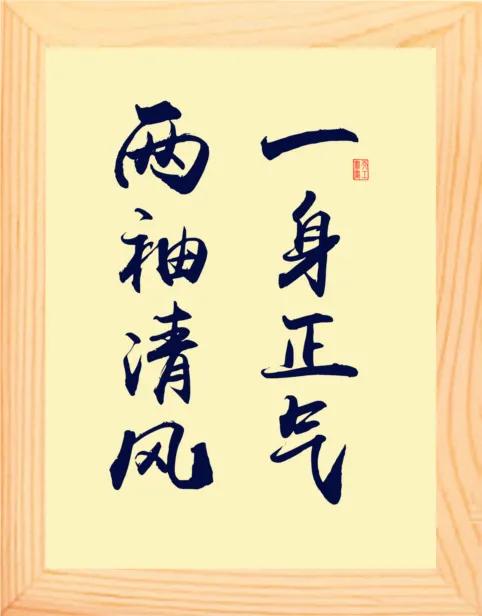 一身正气
两袖清风